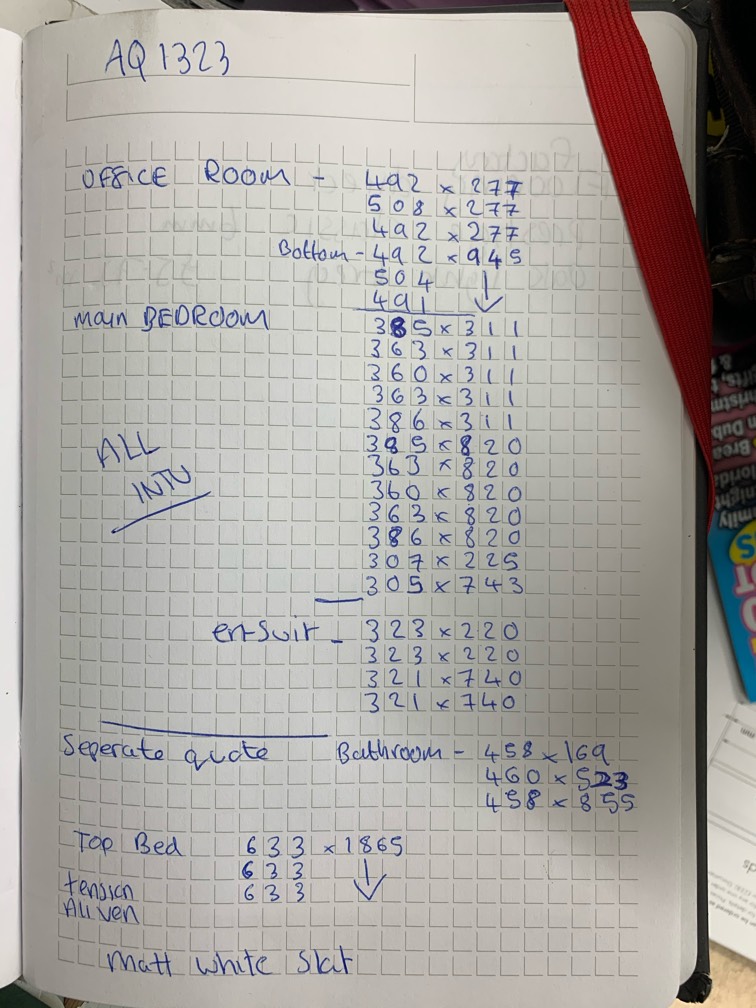 AQ 1323
OFFICE ROOM - 492 x 277
508 x 277
492 x 277
Bottom - 492 x 945
504 ↓
491
MAIN BEDROOM 385 x 311
363 x 311
360 x 311
363 x 311
386 x 311
385 x 820
363 x 820
360 x 820
363 x 820
386 x 820
307 x 225
305 x 743
ALL
INTU
en-Suit - 323 x 220
323 x 220
321 x 740
321 x 740
Seperate quote Bathroom - 458 x 169
460 x 523
458 x 855
Top Bed 633 x 1865
633 ↓
tension 633
All ven
Matt white Slat